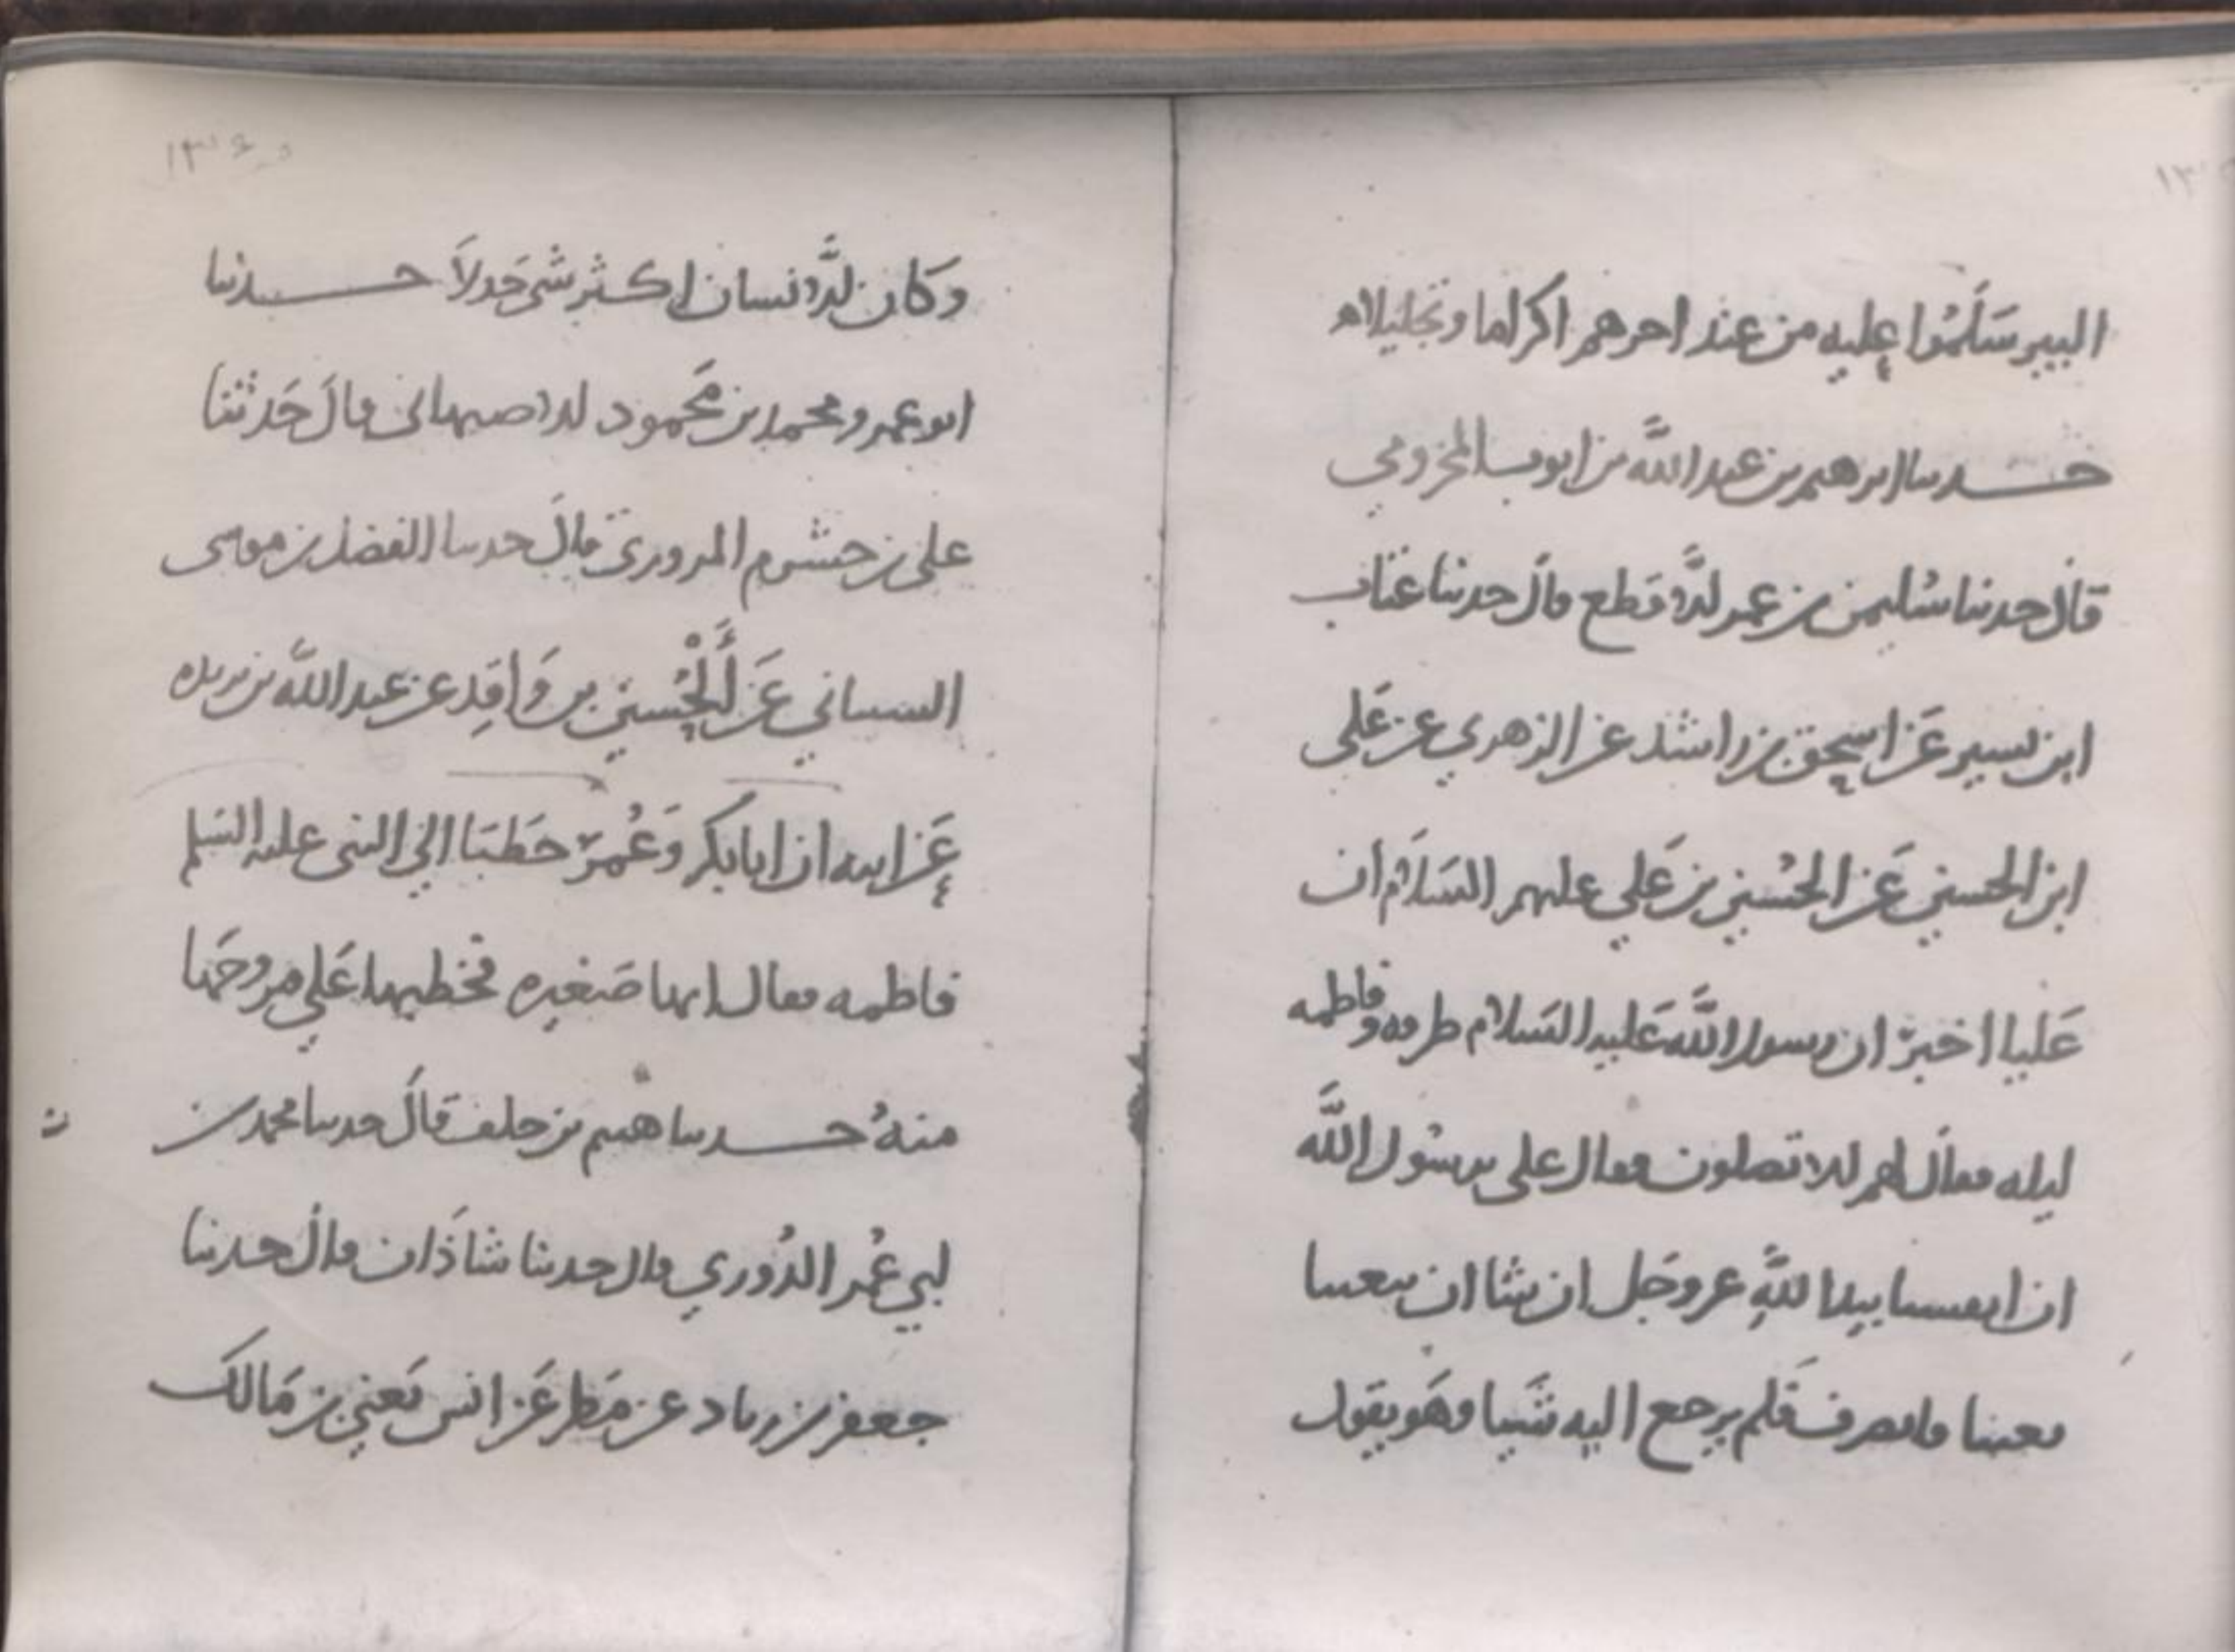 البير سَلَّمُوا عليه من عند اخرهم اكراما وتجليلا ه
حدثنا ابرهيم بن عبد الله بن ايوب المخرومي
قال حدثنا سُليمن بن عمر الاقطع قال حدثنا عتاب
ابن بسير عَن اسحق بن راشد عن الزهري عن عَلي
ابن الحسين عَن الحُسين بن عَلي عليهم السَلام ان
عَليا اخبرَ ان رسول الله عَليه السَلام طرقه وفاطمه
ليله فقال لهم الا تصلون فقال على يرسُول الله
ان انفسنا بيد اللهِ عز وجَل ان شا ان يبعثنا
بعثنا فانصرف فَلم يرجع اليه شَيا وهَو يقول
وَكان الاَنسان اكثر شى جَدلاَ حدثنا
ابو عمرو محمد بن مَحمود الاصبهانى قالَ حَدثنا
على بن خشرم المروري قالَ حدثنا الفضل بن موسى
السيناني عَن الْحُسين بن وَاقِد عن عبد الله بن بريده
عَن ابيه ان ابابكر وَعُمرَ خطبَا الي النبى عليه السَلم
فاطمه فقال انها صَغيره فخطبها عَلي فزوجَها
منهُ حدثنا هيثم بن خلف قالَ حدثنا محمد بن
ابي عُمر الدُوري قال حدثنا شاذَان قال حدثنا
جعفر بن زياد عن مَطر عَن انس يَعني بن مَالك